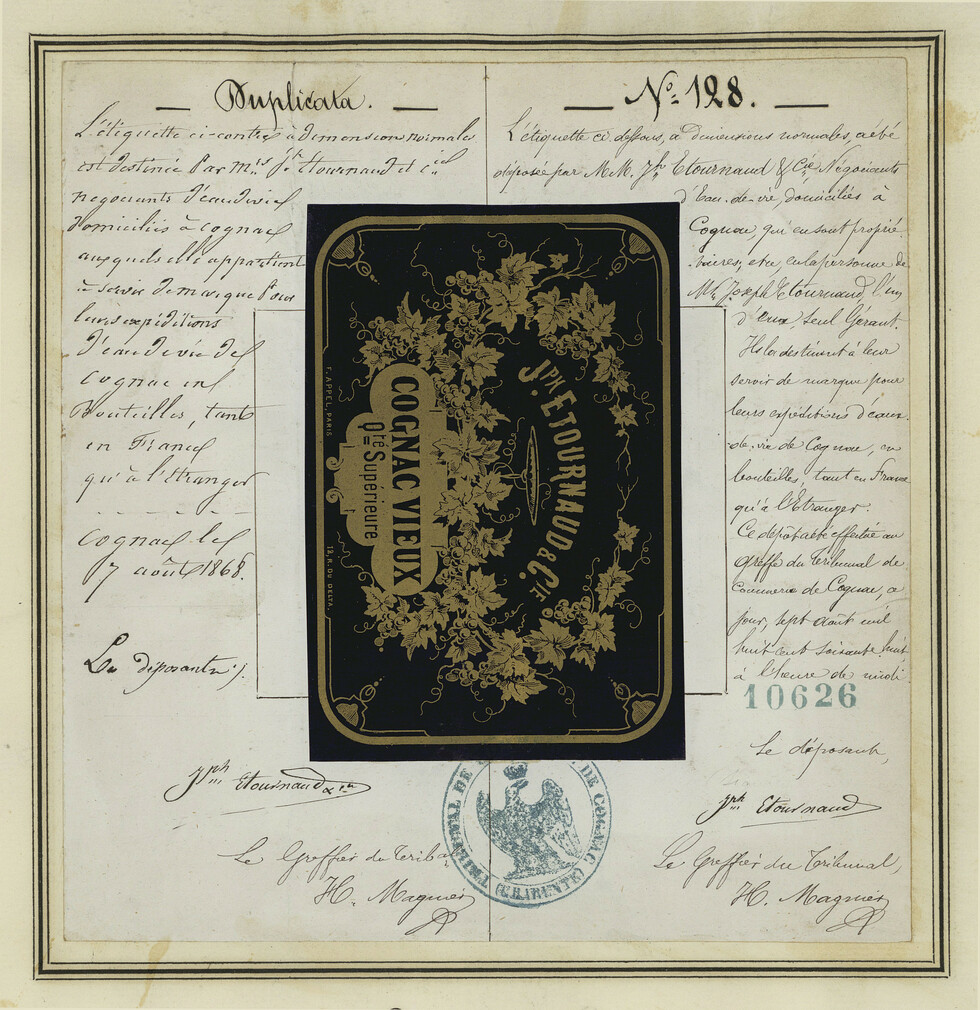 Duplicata.
L'étiquette ci-contre, à dimensions normales
est destinée par M.rs J.h Etournaud et Cie
négociants d'eau de vie
domiciliés à Cognac
auxquels elle appartient
à servir de marque pour
leurs expéditions
d'eau de vie de
Cognac en
Bouteilles, tant
en France
qu'à l'étranger
Cognac le
7 août 1868.
Le déposant
Jph Etournaud & Cie
Le Greffier du Tribal
H. Magnier
No. 128.
L'étiquette ci dessous, à dimensions normales, a été
déposée par M.M. Jh Etournaud & Cie Négociants
d'Eau-de-vie, domiciliés à
Cognac, qui en sont proprié
taires, et ce, en la personne de
Mr. Joseph Etournaud, l'un
d'eux, seul Gérant.
Ils la destinent à leur
servir de marque pour
leurs expéditions d'eaux-
de-vie de Cognac, en
bouteilles, tant en France
qu'à l'Etranger.
Ce dépôt a été effectué au
Greffe du Tribunal de
Commerce de Cognac, ce
jour, sept Août mil
huit cent soixante huit
à l'heure de midi
10626
Le déposant,
Jph Etournaud
Le Greffier du Tribunal,
H. Magnier
JPH. ETOURNAUD & CIE
COGNAC VIEUX
Qté Supérieure
F. APPEL, PARIS
12, R. DU DELTA.
TRIBUNAL DE DE COGNAC
(CHARENTE)